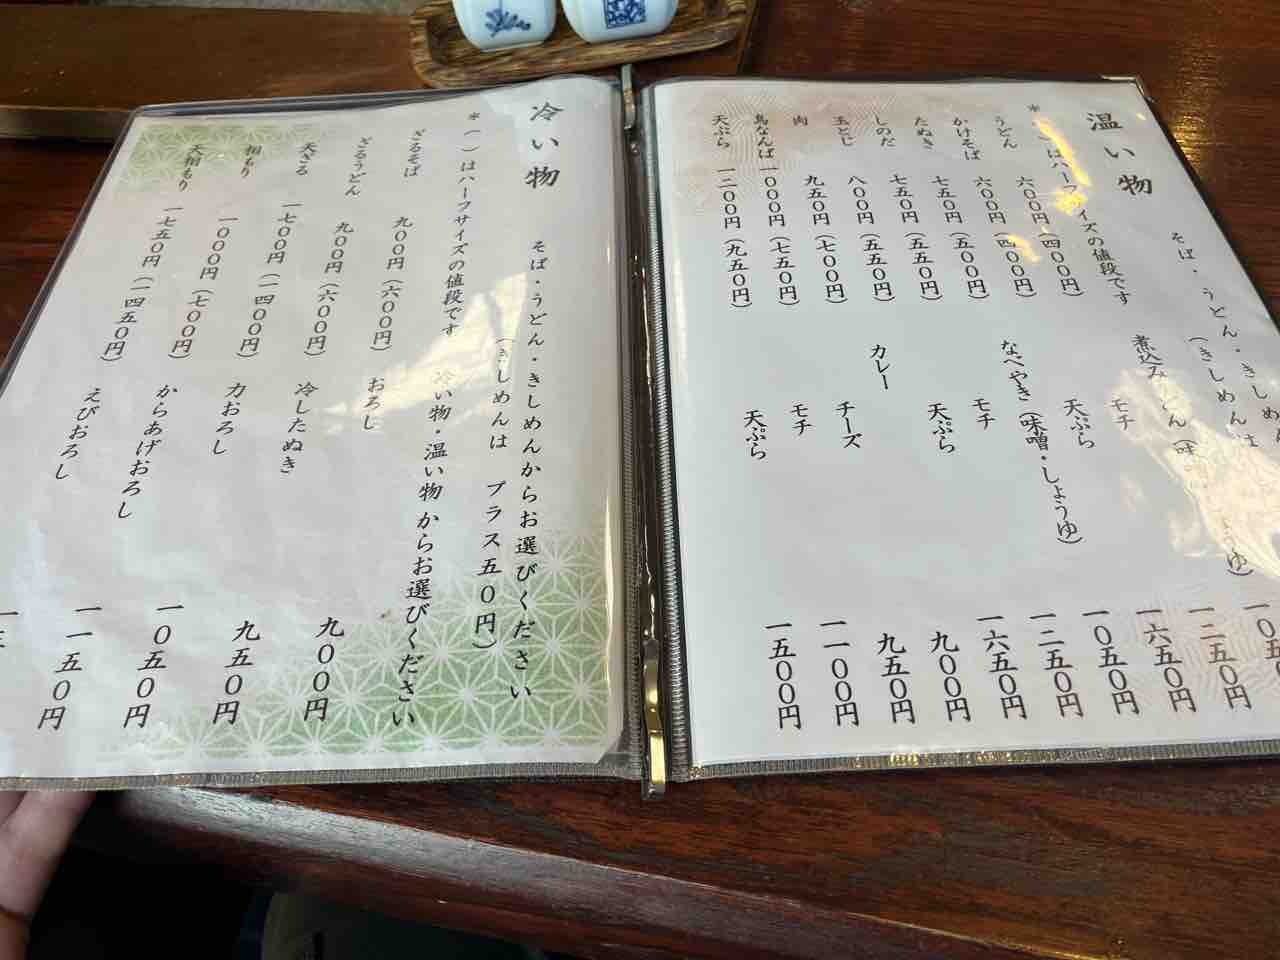 温い物
そば・うどん・きしめん
(きしめんは
*はハーフサイズの値段です
うどん 六〇〇円(四〇〇円)
かけそば 六〇〇円(四〇〇円)
たぬき 七五〇円(五〇〇円)
しのだ 七五〇円(五五〇円)
玉とじ 八〇〇円(五五〇円)
肉 九五〇円(七〇〇円)
鳥なんば 一〇〇〇円(七五〇円)
天ぷら 一二〇〇円(九五〇円)
煮込み
モチ 一二五〇円
天ぷら 一六五〇円
なべやき(味噌・しょうゆ) 一〇五〇円
モチ 一二五〇円
天ぷら 一六五〇円
カレー 九〇〇円
チーズ 九五〇円
モチ 一一〇〇円
天ぷら 一五〇〇円
冷い物
そば・うどん・きしめんからお選びください
(きしめんは プラス五〇円)
*( )はハーフサイズの値段です
ざるそば 九〇〇円(六〇〇円)
ざるうどん 九〇〇円(六〇〇円)
天ざる 一七〇〇円(一四〇〇円)
相もり 一〇〇〇円(七〇〇円)
天相もり 一七五〇円(一四五〇円)
冷い物・温い物からお選びください
おろし 九〇〇円
冷したぬき 九五〇円
力おろし 一〇五〇円
からあげおろし 一一五〇円
えびおろし